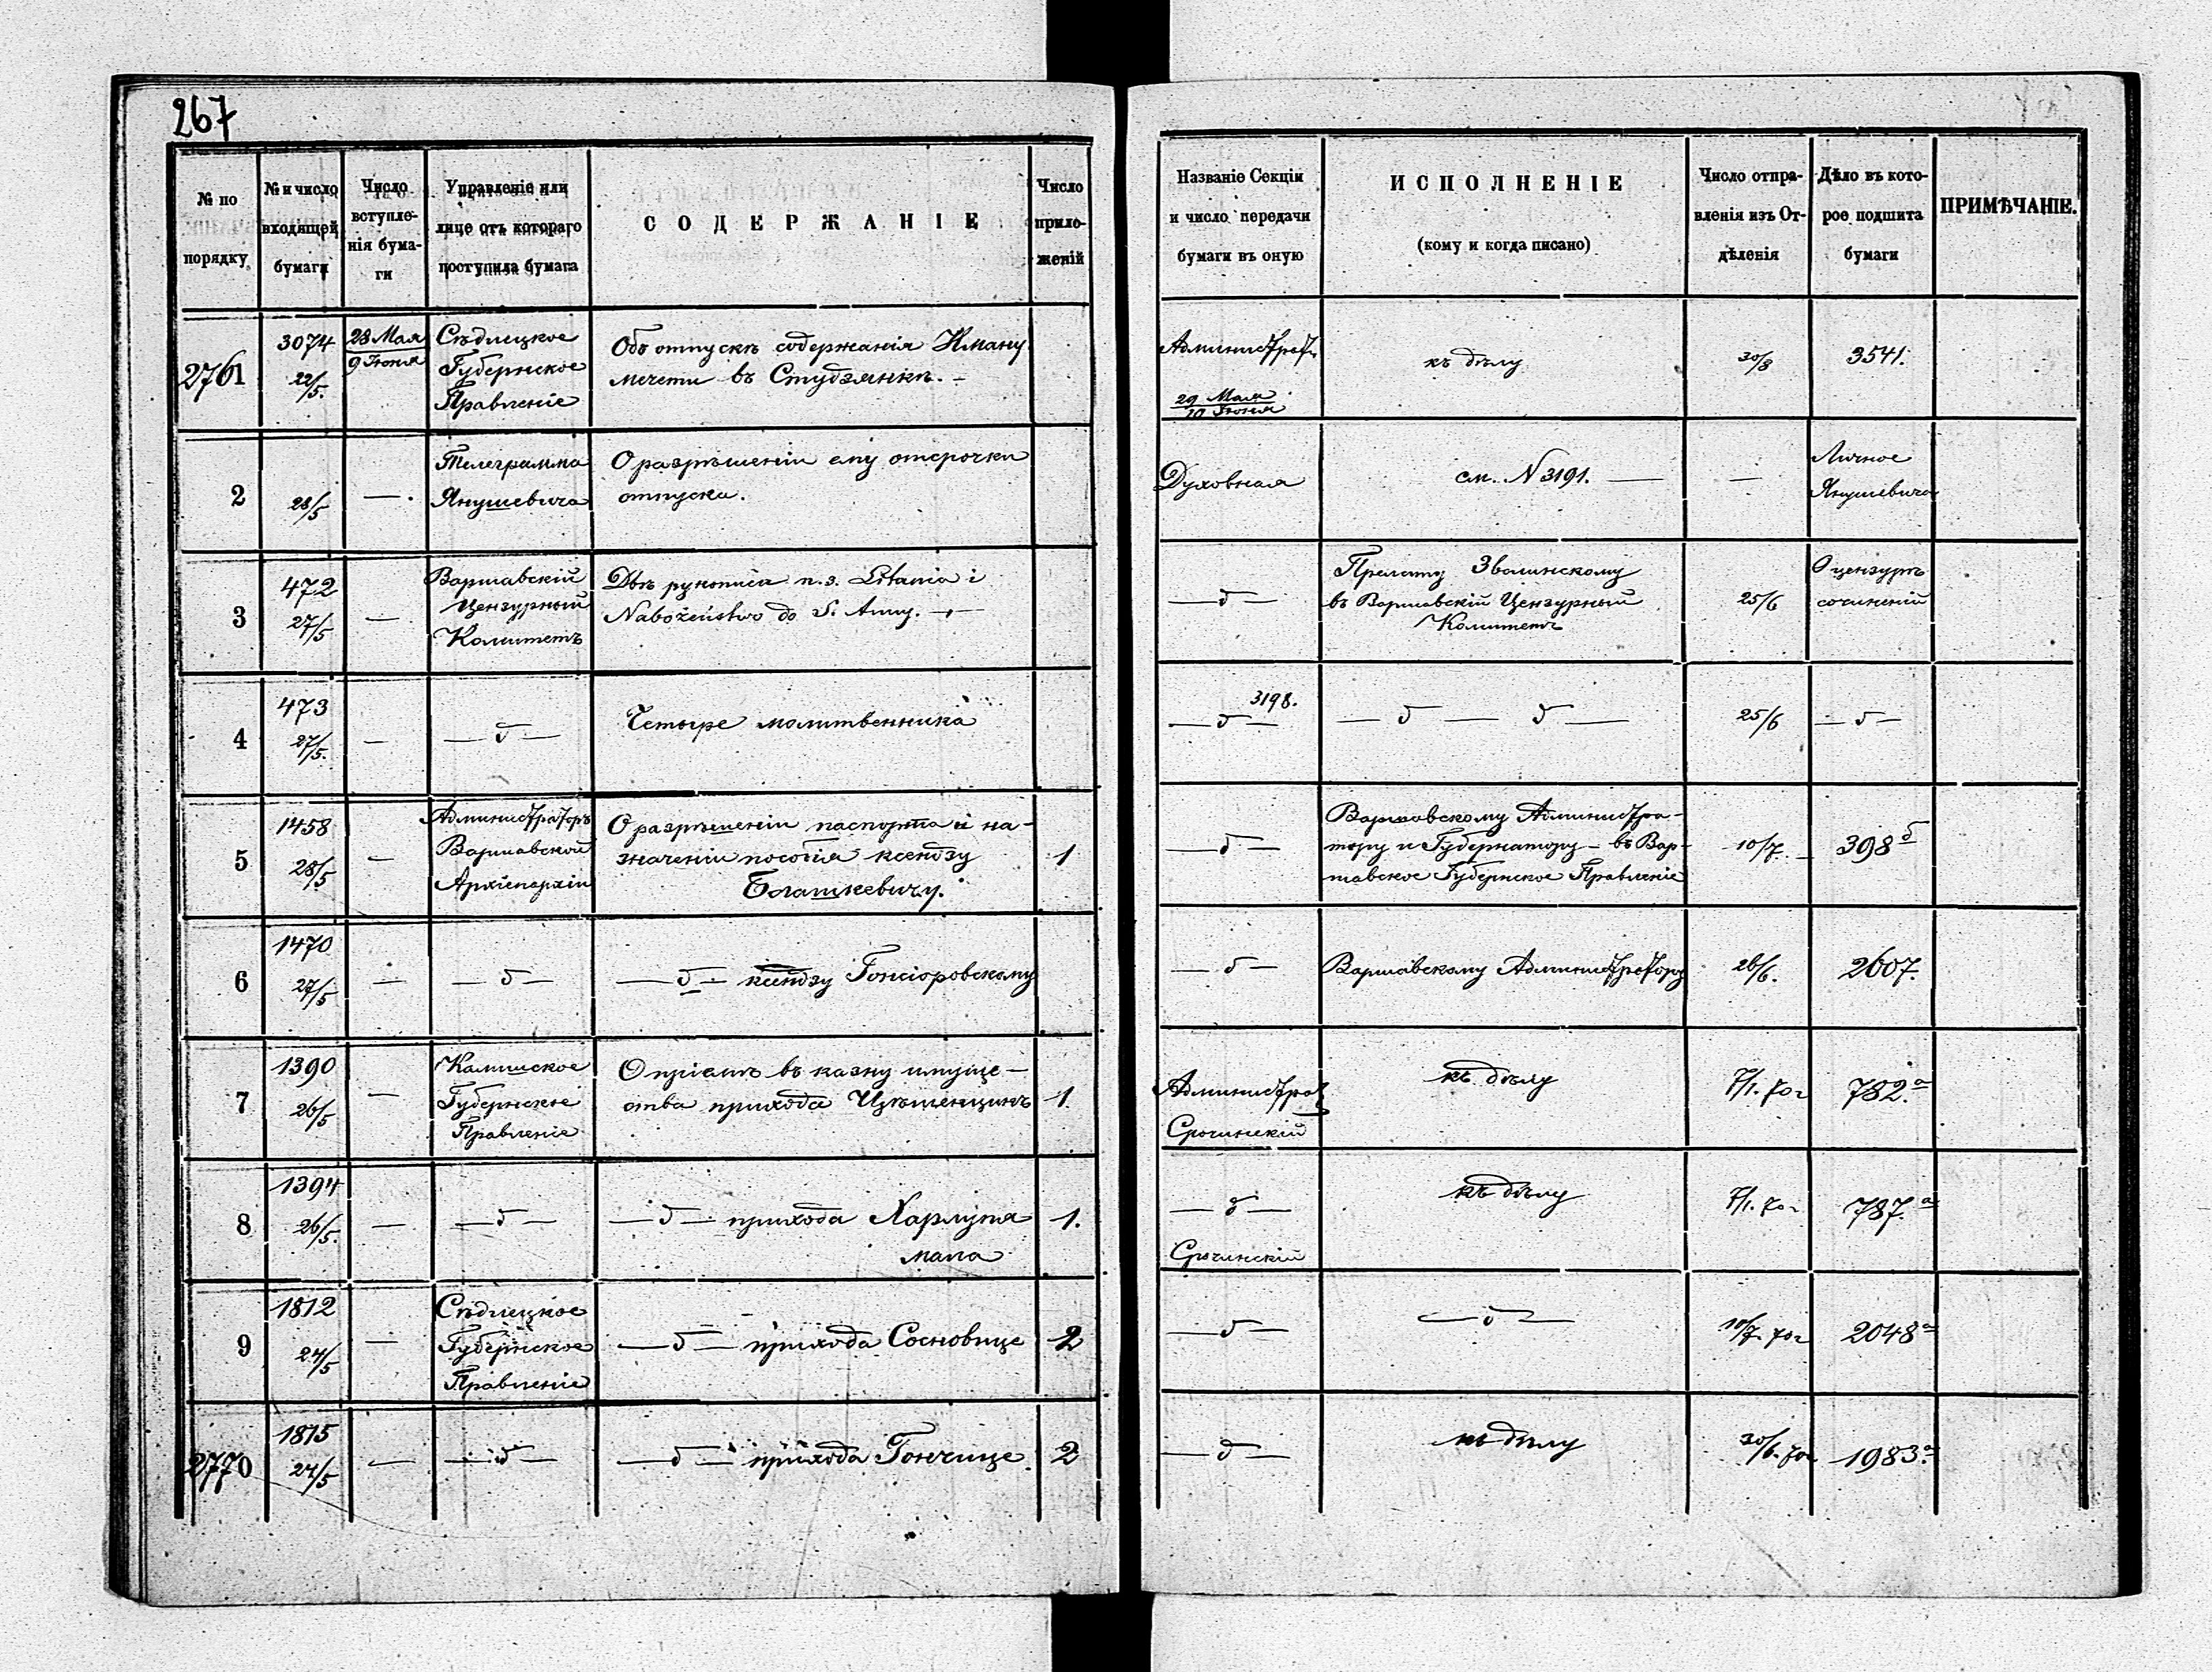 267
№ по порядку
№ и число входящей бумаги
Число вступле-
нія бума-
ги
Управленіе или
лице отъ котораго
поступила бумага
СОДЕРЖАНІЕ
Число
прило-
женій
Названіе Секціи
и число передачи
бумаги въ оную
ИСПОЛНЕНІЕ
(кому и когда писано)
Число отпра-
вленія изъ От-
дѣленія
Дѣло въ кото-
рое подшита
бумаги
ПРИМѢЧАНІЕ.
2761
3074
22/5.
28 Мая
9 Іюня
Сѣдлецкое
Губернское
Правленіе
Объ отпускѣ содержанія Иману
мечети въ Студзянкѣ. –
Администрат.
29 Мая
10 Іюня
къ дѣлу
30/8
3541.
2
28/5
— .
Телеграмма
Янушевича
О разрѣшеніи ему отсрочки
отпуска.
Духовная
см. N 3191. —
—
Личное
Янушевича
3
472
27/5
—
Варшавскій
Цензурный
Комитетъ
Двѣ рукописи п. з. Litania i
Nabożeństwo do S. Anny. —
— δ —
Прелату Зволинскому
въ Варшавскій Цензурный
Комитетъ
25/6
О цензурѣ
сочиненій
4
473
27/5.
—
— δ —
Четыре молитвенника
3198.
— δ —
— δ — δ —
25/6
— δ —
5
1458
28/5
—
Администраторъ
Варшавской
Архіепархіи
О разрѣшеніи паспорта и на-
значеніи пособія ксендзу
Блашкевичу.
1
— δ —
Варшавскому Администра-
тору и Губернатору – въ Вар-
шавское Губернское Правленіе
10/7. —
398 б
6
1470
27/5
—
— δ —
— δ — ксендзу Гонсіоровскому
— δ —
Варшавскому Администратору
26/6.
2607.
7
1390
26/5
—
Калишское
Губернское
Правленіе
О пріемѣ въ казну имуще-
ства прихода
1
Администрат.
Срочинскій
къ дѣлу
7/1. 70 г
782. а
8
1394
26/5.
—
— δ —
— δ — прихода Харлупя
мала
1.
— δ —
Срочинскій
къ дѣлу
7/1. 70 г
787. а
9
1812
24/5
—
Сѣдлецкое
Губернское
Правленіе
— δ — прихода Сосновице
2
— δ —
— δ —
10/7. 70 г
2048 а
2770
1815
24/5
—
— δ —
— δ — прихода Гончице
2
— δ —
къ дѣлу
30/6. 70 г
1983. а